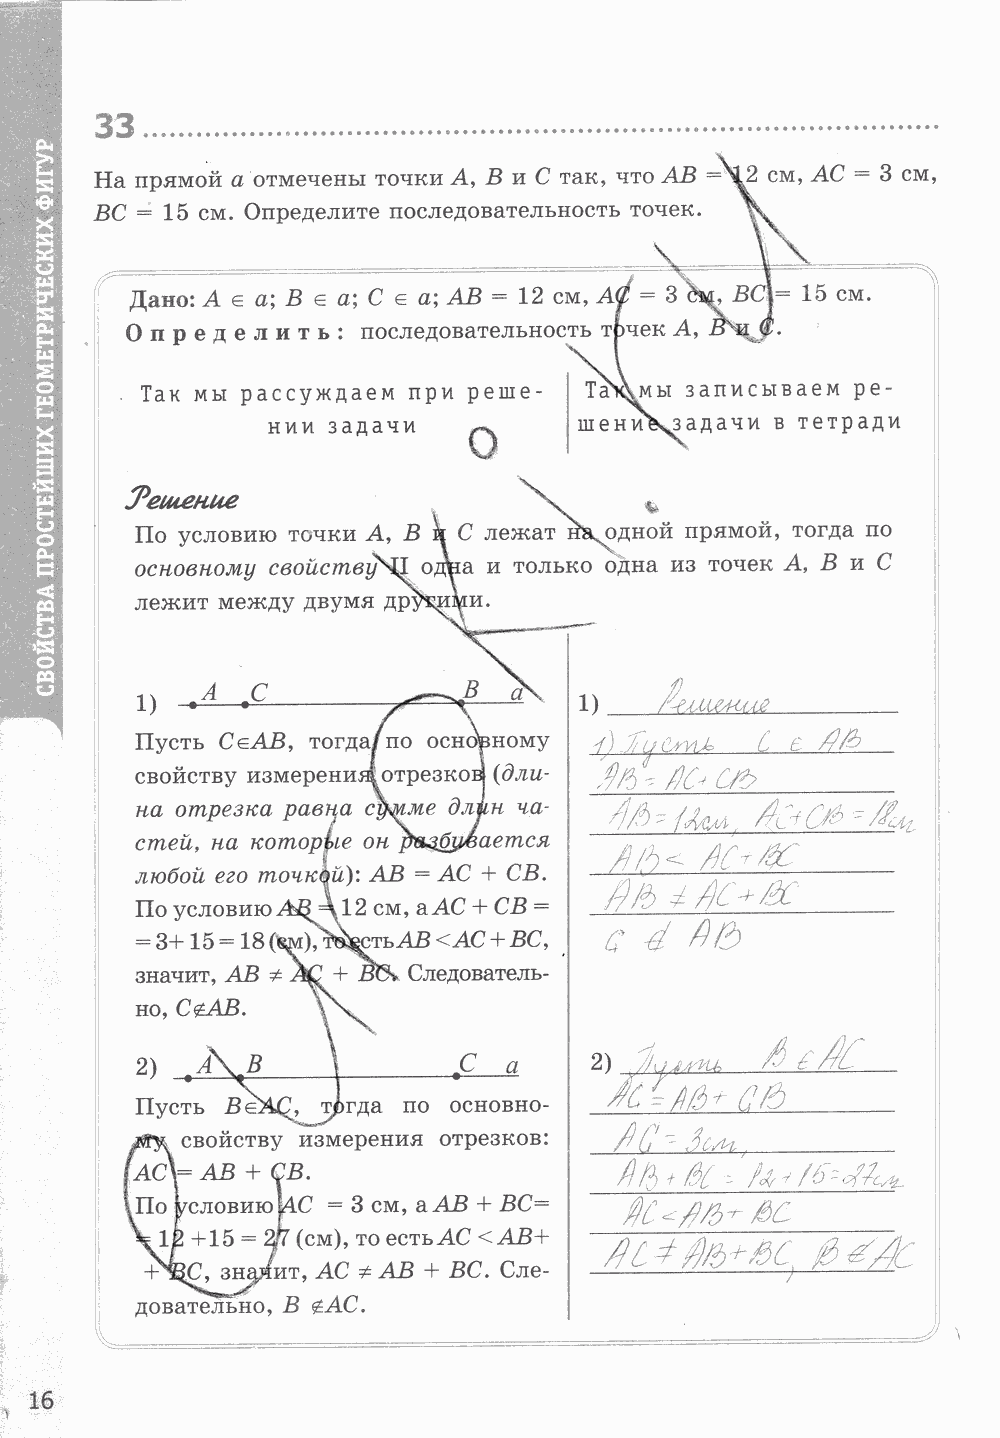 СВОЙСТВА ПРОСТЕЙШИХ ГЕОМЕТРИЧЕСКИХ ФИГУР
33
На прямой a отмечены точки A, B и C так, что AB = 12 см, AC = 3 см,
BC = 15 см. Определите последовательность точек.
Дано: A ∈ a; B ∈ a; C ∈ a; AB = 12 см, AC = 3 см, BC = 15 см.
Определить: последовательность точек A, B и C.
Так мы рассуждаем при реше-
нии задачи
Так мы записываем ре-
шение задачи в тетради
Решение
По условию точки A, B и C лежат на одной прямой, тогда по
основному свойству II одна и только одна из точек A, B и C
лежит между двумя другими.
1) A C B a
Пусть C∈AB, тогда по основному
свойству измерения отрезков (дли-
на отрезка равна сумме длин ча-
стей, на которые он разбивается
любой его точкой): AB = AC + CB.
По условию AB = 12 см, а AC + CB =
= 3+ 15 = 18 (см), то есть AB < AC + BC,
значит, AB ≠ AC + BC. Следователь-
но, C∉AB.
1) Решение
1) Пусть C ∈ AB
AB = AC + CB
AB = 12см, AC + CB = 18см
AB < AC + BC
AB ≠ AC + BC
C ∉ AB
2) A B C a
Пусть B∈AC, тогда по основно-
му свойству измерения отрезков:
AC = AB + CB.
По условию AC = 3 см, а AB + BC=
= 12 +15 = 27 (см), то есть AC < AB+
+ BC, значит, AC ≠ AB + BC. Сле-
довательно, B ∉AC.
2) Пусть B ∈ AC
AC = AB + CB
AC = 3см,
AB + BC = 12 + 15 = 27см
AC < AB + BC
AC ≠ AB + BC, B ∉ AC
16